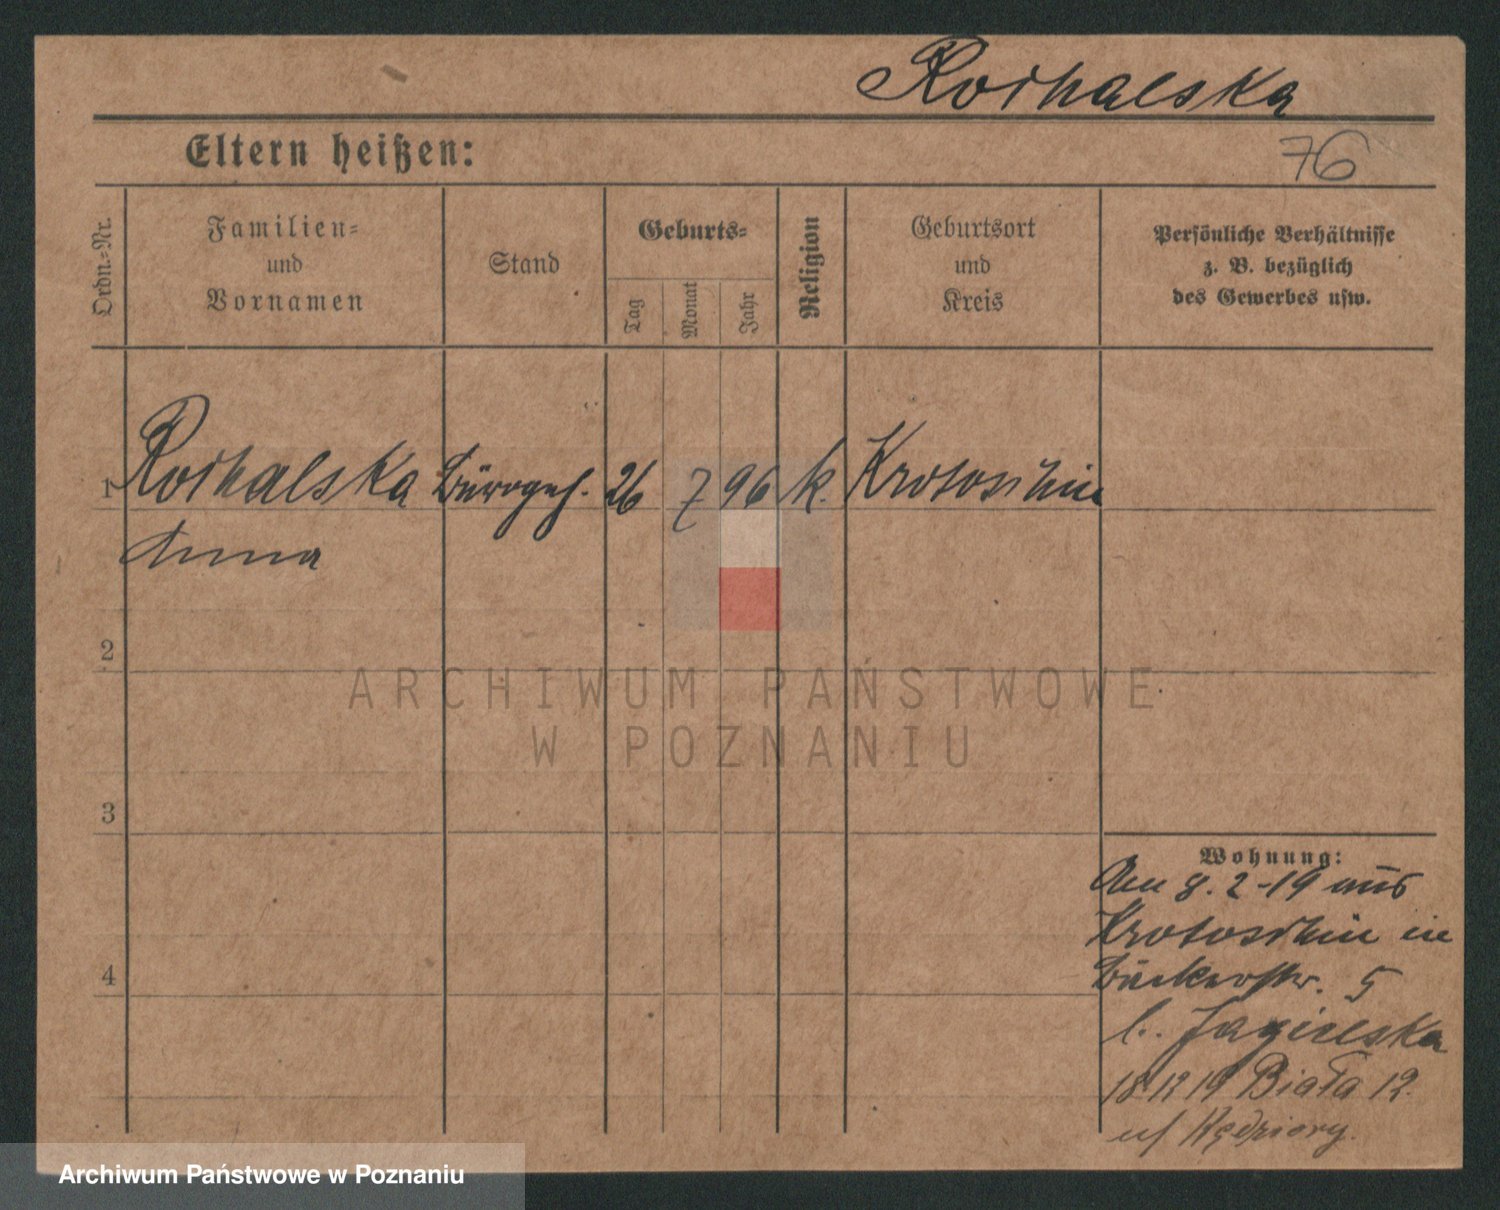 Rothalska
Eltern heißen:
76
Ordn.-Nr.
Familien-
und
Vornamen
Stand
Geburts-
Tag
Monat
Jahr
Religion
Geburtsort
und
Kreis
Persönliche Verhältnisse
z. B. bezüglich
des Gewerbes usw.
1 Rothalska Bürogeh. 26 7 96 k. Krotoschin
Anna
2
3
4
Wohnung:
Am 8. 2-19 aus
Krotoschin in
Bäckerstr. 5
b. Jagielska
18 12 19 Biała 12.
u/ Kędziory.
ARCHIWUM PAŃSTWOWE
W POZNANIU
Archiwum Państwowe w Poznaniu